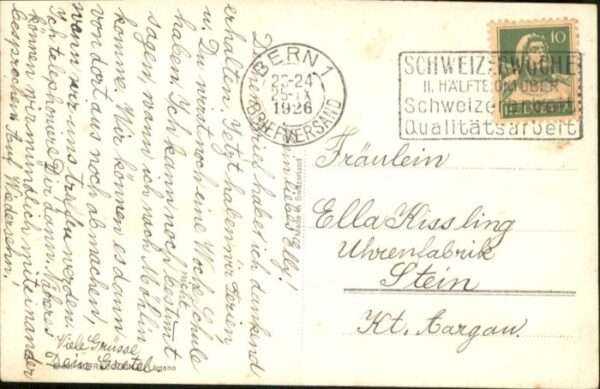 Mein liebes Elly!
Deinen Brief habe ich dankend
erhalten. Jetzt haben wir Ferien,
u. Du wirst noch eine Woche Schule
haben. Ich kann noch nicht bestimmt
sagen, wann ich nach Möhlin
komme. Wir können es dann
von dort aus noch abmachen,
wann wir uns treffen werden.
Ich telephoniere Dir dann. Näheres
können wir mündlich miteinander
besprechen. Auf Wiedersehn!
Viele Grüsse
Deine Gretel
BERN 1
23-24
1926
BRIEFVERSAND
10
SCHWEIZERWOCHE
II. HÄLFTE OKTOBER
Schweizerarbeit
Qualitätsarbeit
Fräulein
Ella Kissling
Uhrenfabrik
Stein
Kt. Aargau.